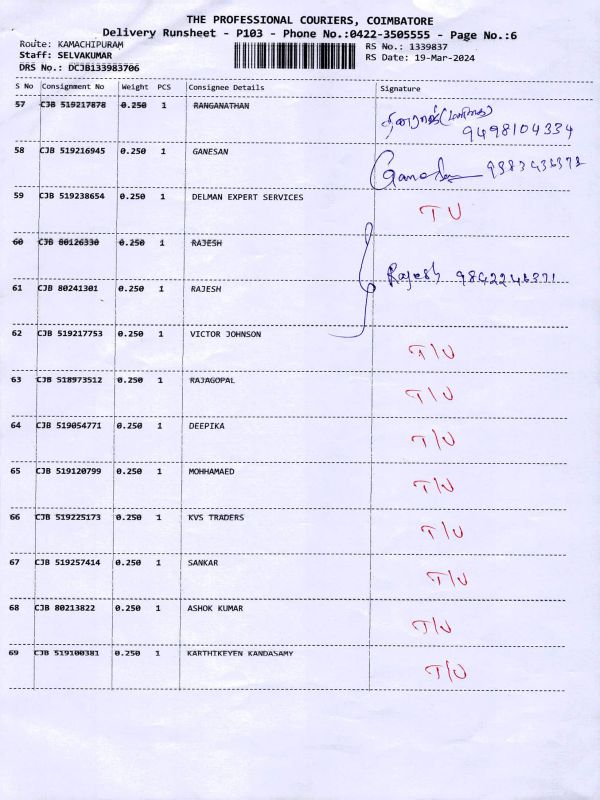 THE PROFESSIONAL COURIERS, COIMBATORE
Delivery Runsheet - P103 - Phone No.:0422-3505555 - Page No.:6
Route: KAMACHIPURAM RS No.: 1339837
Staff: SELVAKUMAR RS Date: 19-Mar-2024
DRS No.: DCJB133983706
S No Consignment No Weight PCS Consignee Details Signature
57 CJB 519217878 0.250 1 RANGANATHAN
9498104334
58 CJB 519216945 0.250 1 GANESAN Ganesan
59 CJB 519238654 0.250 1 DELMAN EXPERT SERVICES T U
60 CJB 80126330 0.250 1 RAJESH
Rajesh 9842246371
61 CJB 80241301 0.250 1 RAJESH
62 CJB 519217753 0.250 1 VICTOR JOHNSON T/U
63 CJB 518973512 0.250 1 RAJAGOPAL T/U
64 CJB 519054771 0.250 1 DEEPIKA T/U
65 CJB 519120799 0.250 1 MOHHAMAED T/U
66 CJB 519225173 0.250 1 KVS TRADERS T/U
67 CJB 519257414 0.250 1 SANKAR T/U
68 CJB 80213822 0.250 1 ASHOK KUMAR T/U
69 CJB 519100381 0.250 1 KARTHIKEYEN KANDASAMY T/U